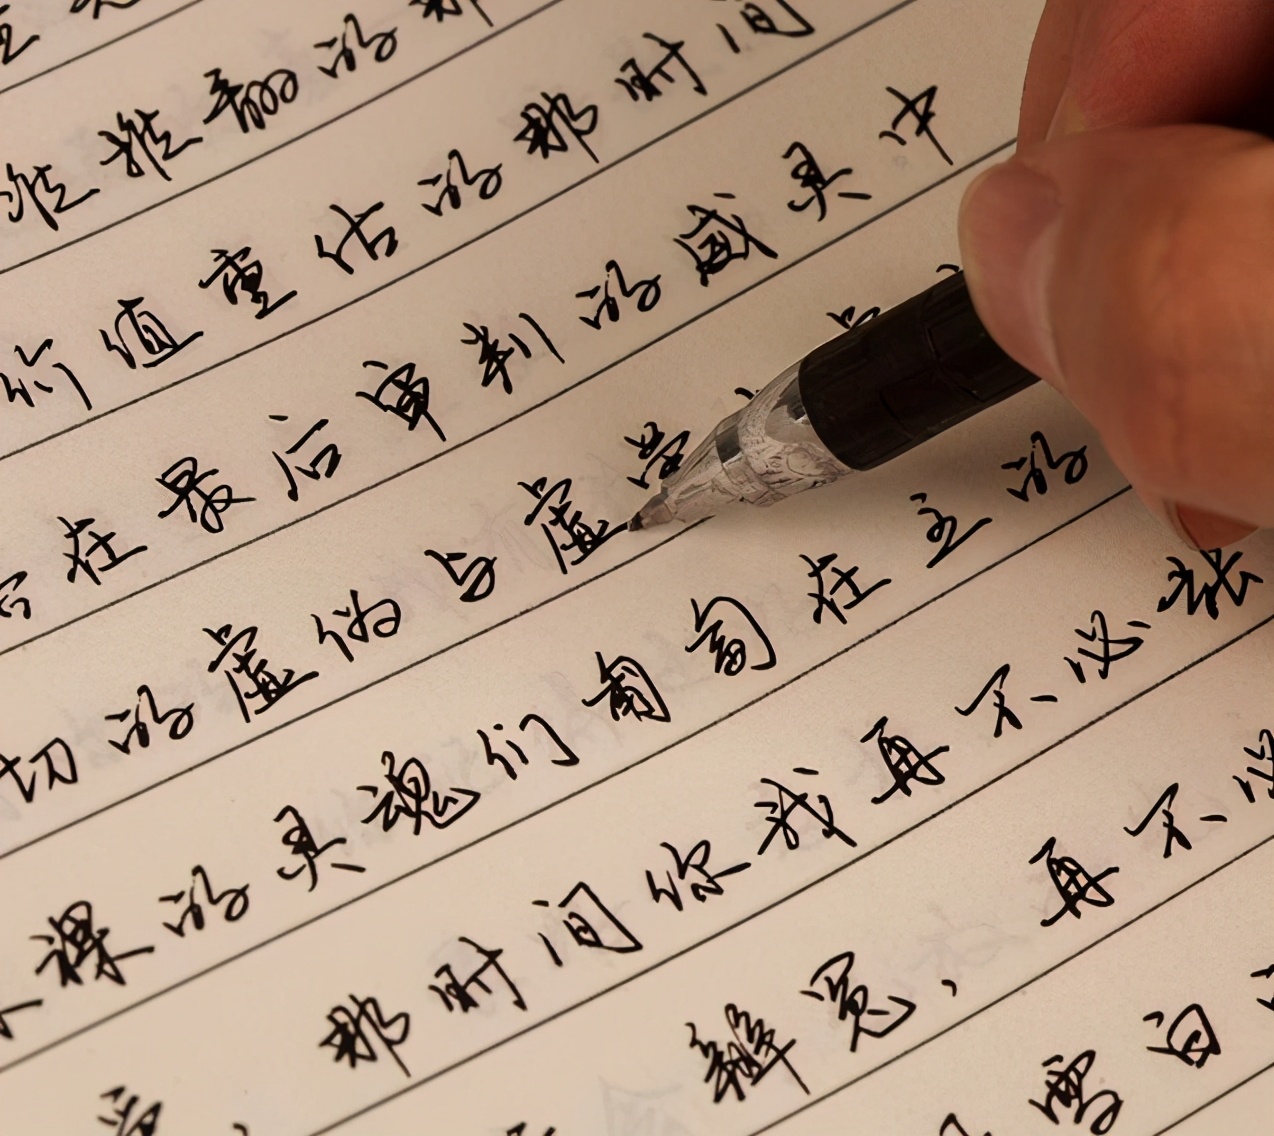 准推翻的那
价值重估的那时间
在最后审判的威灵中
切的虚伪与虚荣
裸的灵魂们匍匐在主的
那时间你我再不必张
辨冤，再不必
雪白